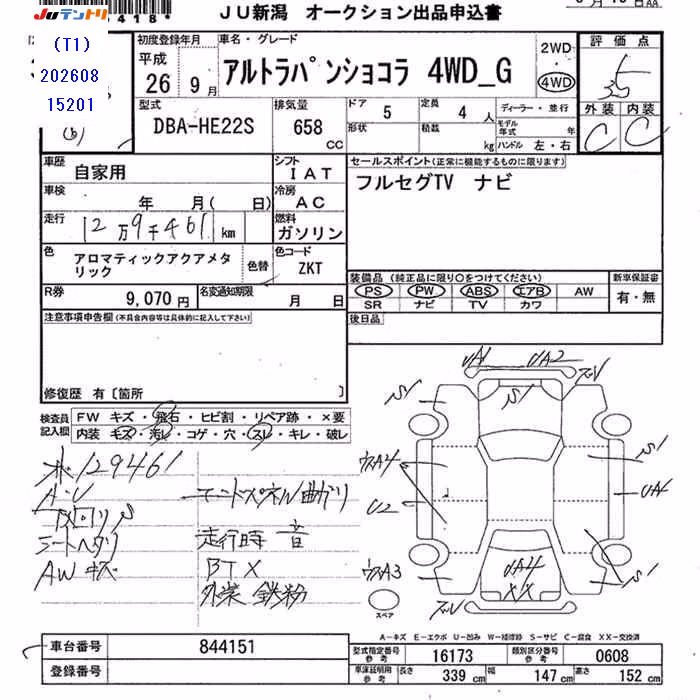 JUテントリ
418*
JU新潟 オークション出品申込書
(T1)
202608
15201
(6)
初度登録年月
平成
26 9月
車名・グレード
アルトラパンショコラ 4WD_G
2WD
4WD
評価点
3.5
外装 内装
C C
型式
DBA-HE22S
排気量
658
CC
ドア
5
定員
4 人
形状
積載
kg
ディーラー・並行
モデル年式 年
ハンドル 左・右
車歴
自家用
シフト
IAT
車検
年 月( 日)
冷房
AC
走行
12万9千461 km
燃料
ガソリン
色
アロマティックアクアメタリック
色替
色コード
ZKT
R券
9,070円
名変通知期限
月 日
セールスポイント(正常に機能するものに限ります)
フルセグTV ナビ
装備品 (純正品に限り○をつけてください)
PS PW ABS エアB AW
SR ナビ TV カワ
新車保証書
有・無
後日品
注意事項申告欄(不具合内容等は具体的に記入して下さい)
修復歴 有〔箇所 〕
検査員記入欄
FW キズ・飛石・ヒビ割・リペア跡・×要
内装 キズ・汚レ・コゲ・穴・スレ・キレ・破レ
129461
A・U
下回りS
シートヘタリ
AWキズ
エンドパネル曲がり
走行時 音
BTX
外装 鉄粉
UA1 UA2
S1 S1
S1
UA4
U2
UA4
S1
XX
スペア
A-キズ E-エクボ U-凹み W-補修跡 S-サビ C-腐食 XX-交換済
車台番号
844151
登録番号
型式指定番号 参考
16173
類別区分番号 参考
0608
車庫証明用 参考
長さ 339 cm
幅 147 cm
高さ 152 cm